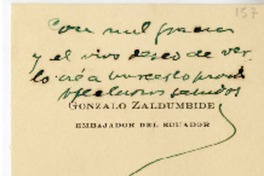 157
Con mil gracias
y el vivo deseo de ver
lo
afectuosos saludos
GONZALO ZALDUMBIDE
EMBAJADOR DEL ECUADOR